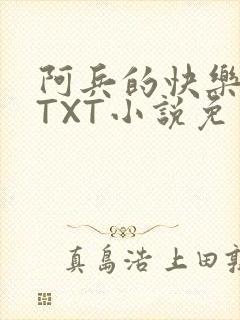 阿兵的快樂
TXT小說免
真島浩上田